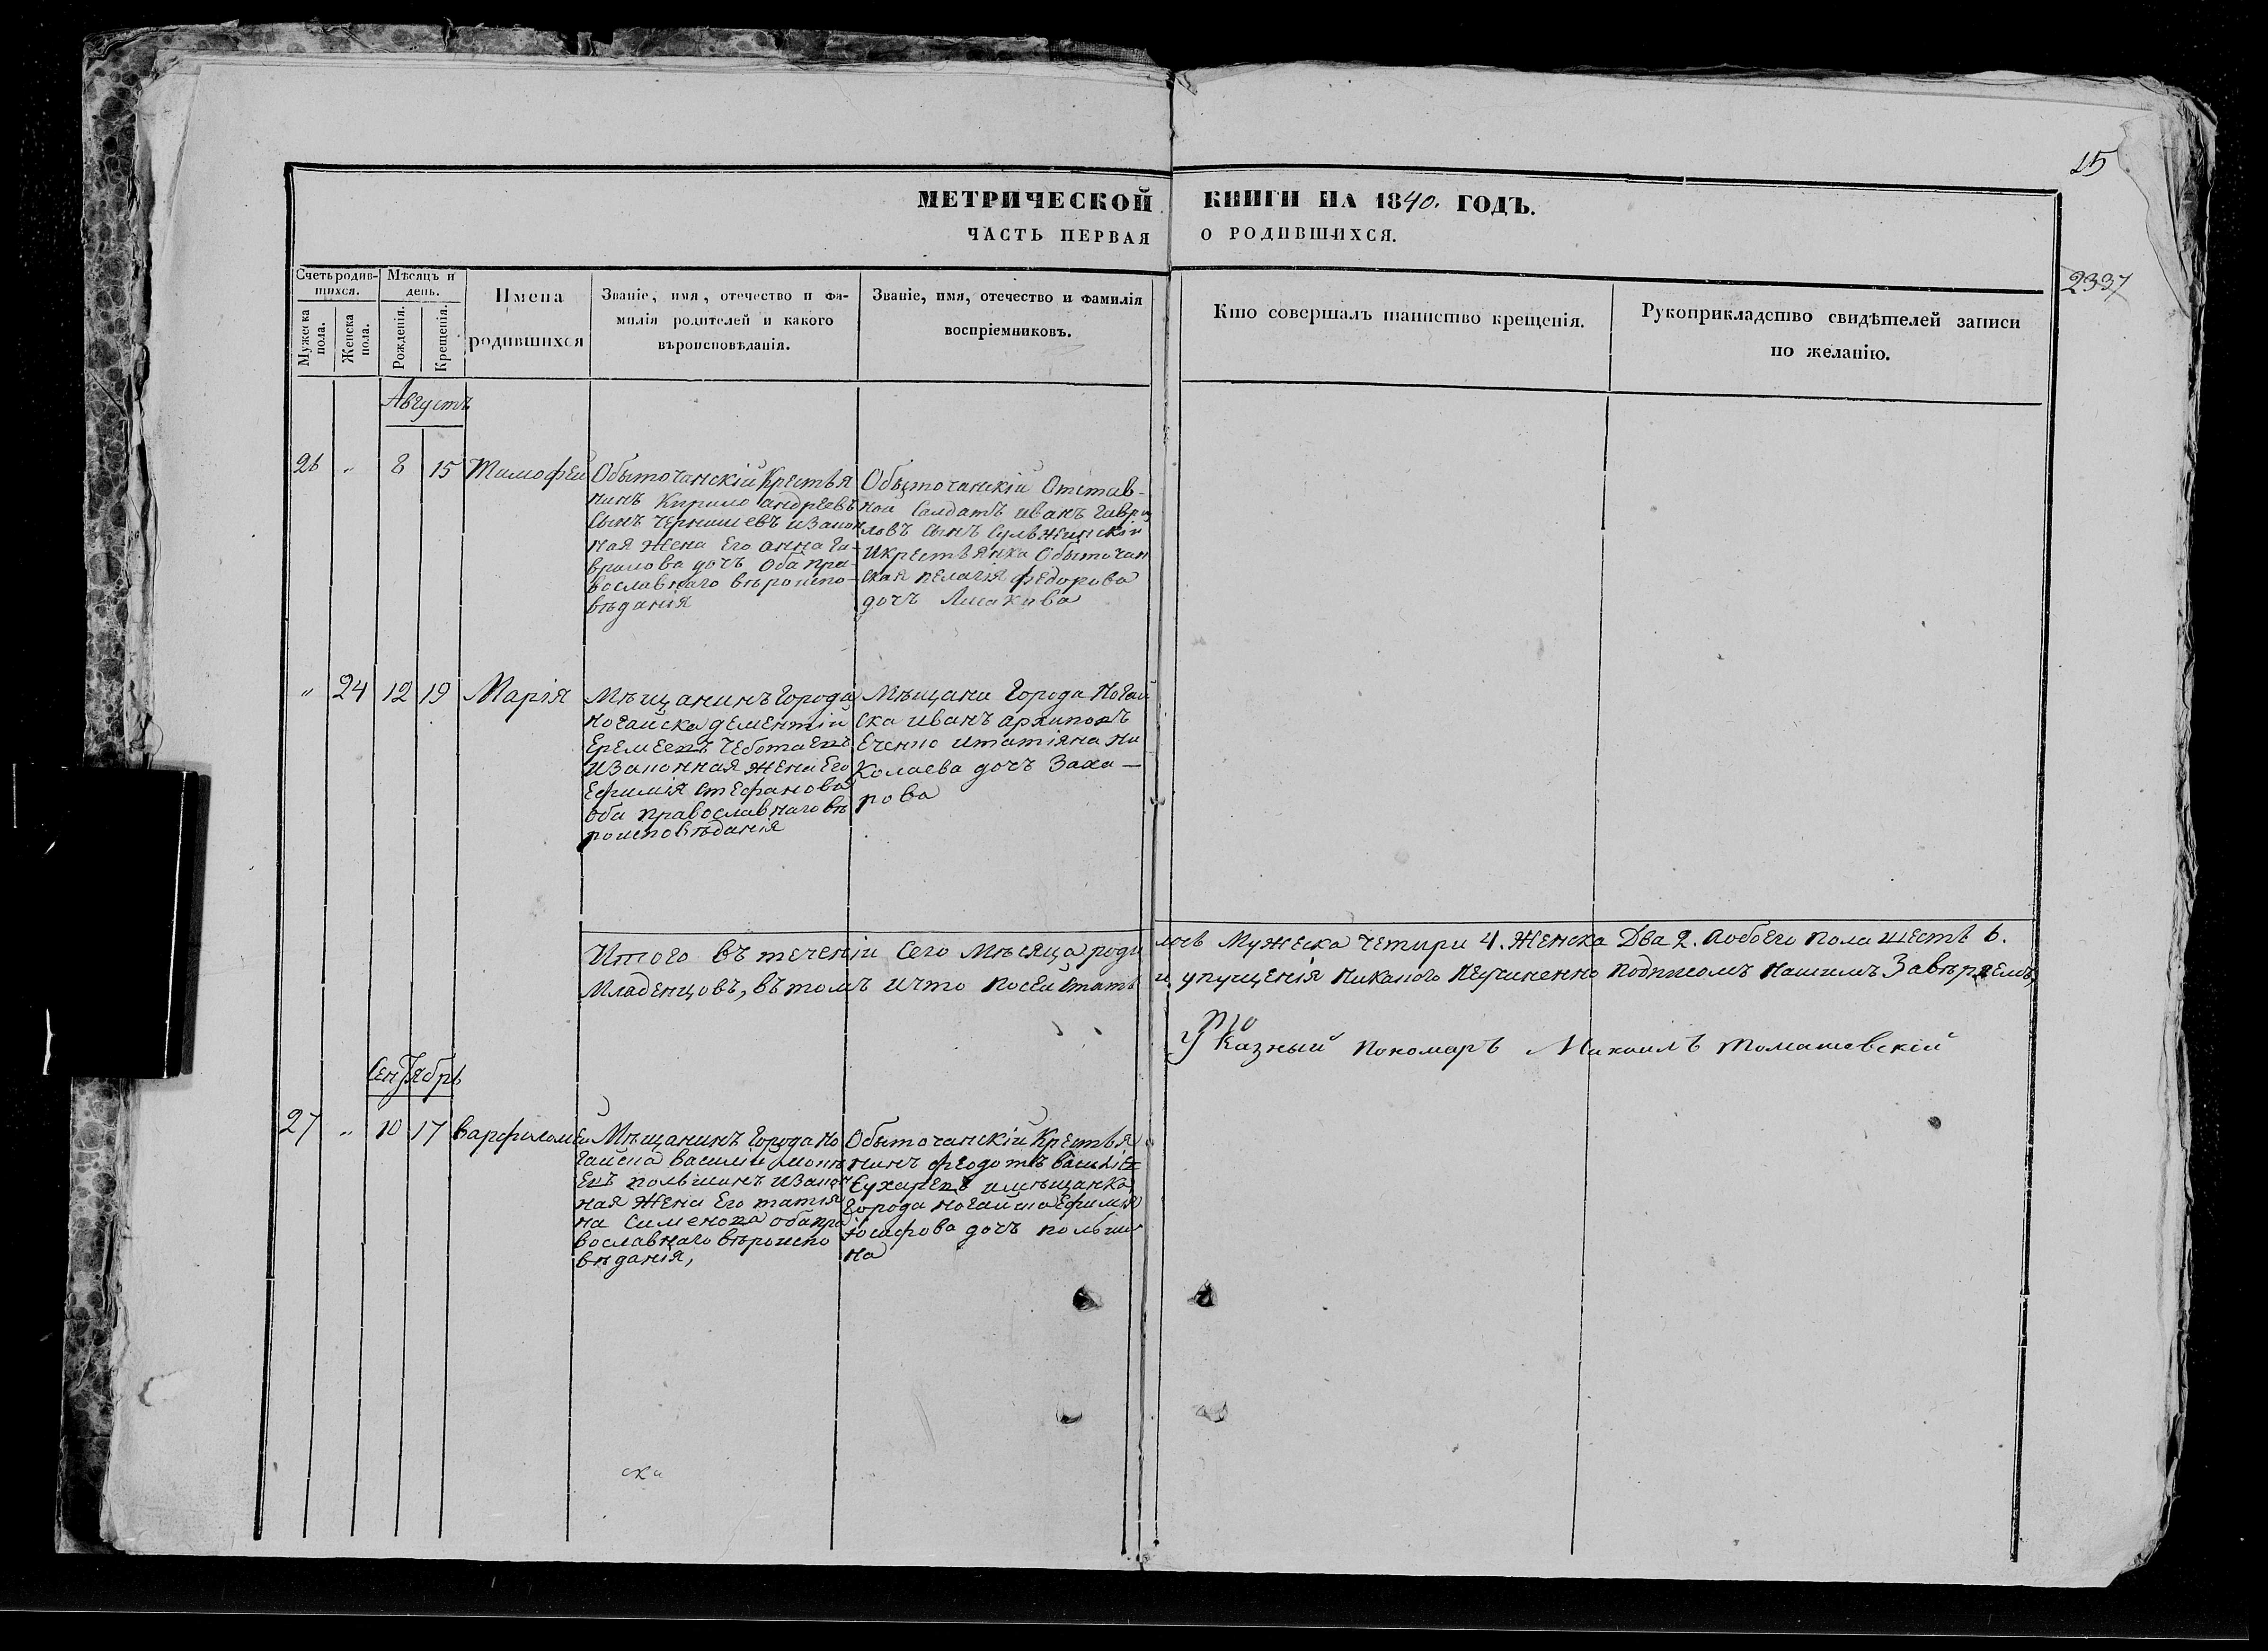 15
МЕТРИЧЕСКОЙ КНИГИ НА 1840. ГОДЪ.
ЧАСТЬ ПЕРВАЯ О РОДИВШИХСЯ.
2337
Счетъ родив-
шихся.
Мужеска
пола.
Женска
пола.
Мѣсяцъ и
день.
Рожденія.
Крещенія.
Имена
родившихся
Званіе, имя, отечество и фа-
милія родителей и какого
вѣроисповѣданія.
Званіе, имя, отечество и фамилія
воспріемниковъ.
Кто совершалъ таинство крещенія.
Рукоприкладство свидѣтелей записи
по желанію.
Августъ
26 „ 8 15 Тимофей
Обыточанскій Крестья
нинъ Кирило андрѣевъ
Сынъ Чернишевъ изакон
ная жена Его анна Га-
врилова дочъ Оба пра-
вославнаго вѣроиспо-
вѣданія
Обыточанскій Отстав-
ной Салдатъ иванъ Гаври
ловъ Сынъ
икрестьянка Обыточан
ская пелагія федорова
дочъ
„ 24 12 19 Марія
Мѣщанинъ Города
Ногайска дементій
Еремеевъ Чеботаевъ
изаконная жена Его
Ефимія Стефанова
оба православнаго вѣ
роисповѣданія
Мѣщани Города Ногай
ска иванъ архиповъ
итатіяна ни
колаева дочъ Заха-
рова
Итого въ теченіи Сего Мѣсяца роди лось Мужеска четыри 4. Женска Два 2. Аобоего пола шесть 6.
Младенцовъ, въ томъ ичто посей Статьи упущенія никакого неучиненно подписомъ нашимъ Завѣряемъ,
Указный пономаръ Михаилъ Томашевскій
Сентябрь
27 „ 10 17 варфоломей
Мѣщанинъ Города Но
гайска василій
польшинъ изакон
ная жена Его татія
на Семенова оба пра
вославнаго вѣроиспо
вѣданія,
Обыточанскій Крестья
нинъ феодотъ василіев
Сухаревъ имѣщанка
Города Ногайска Ефимія
Іосифова дочъ польши
на
ска